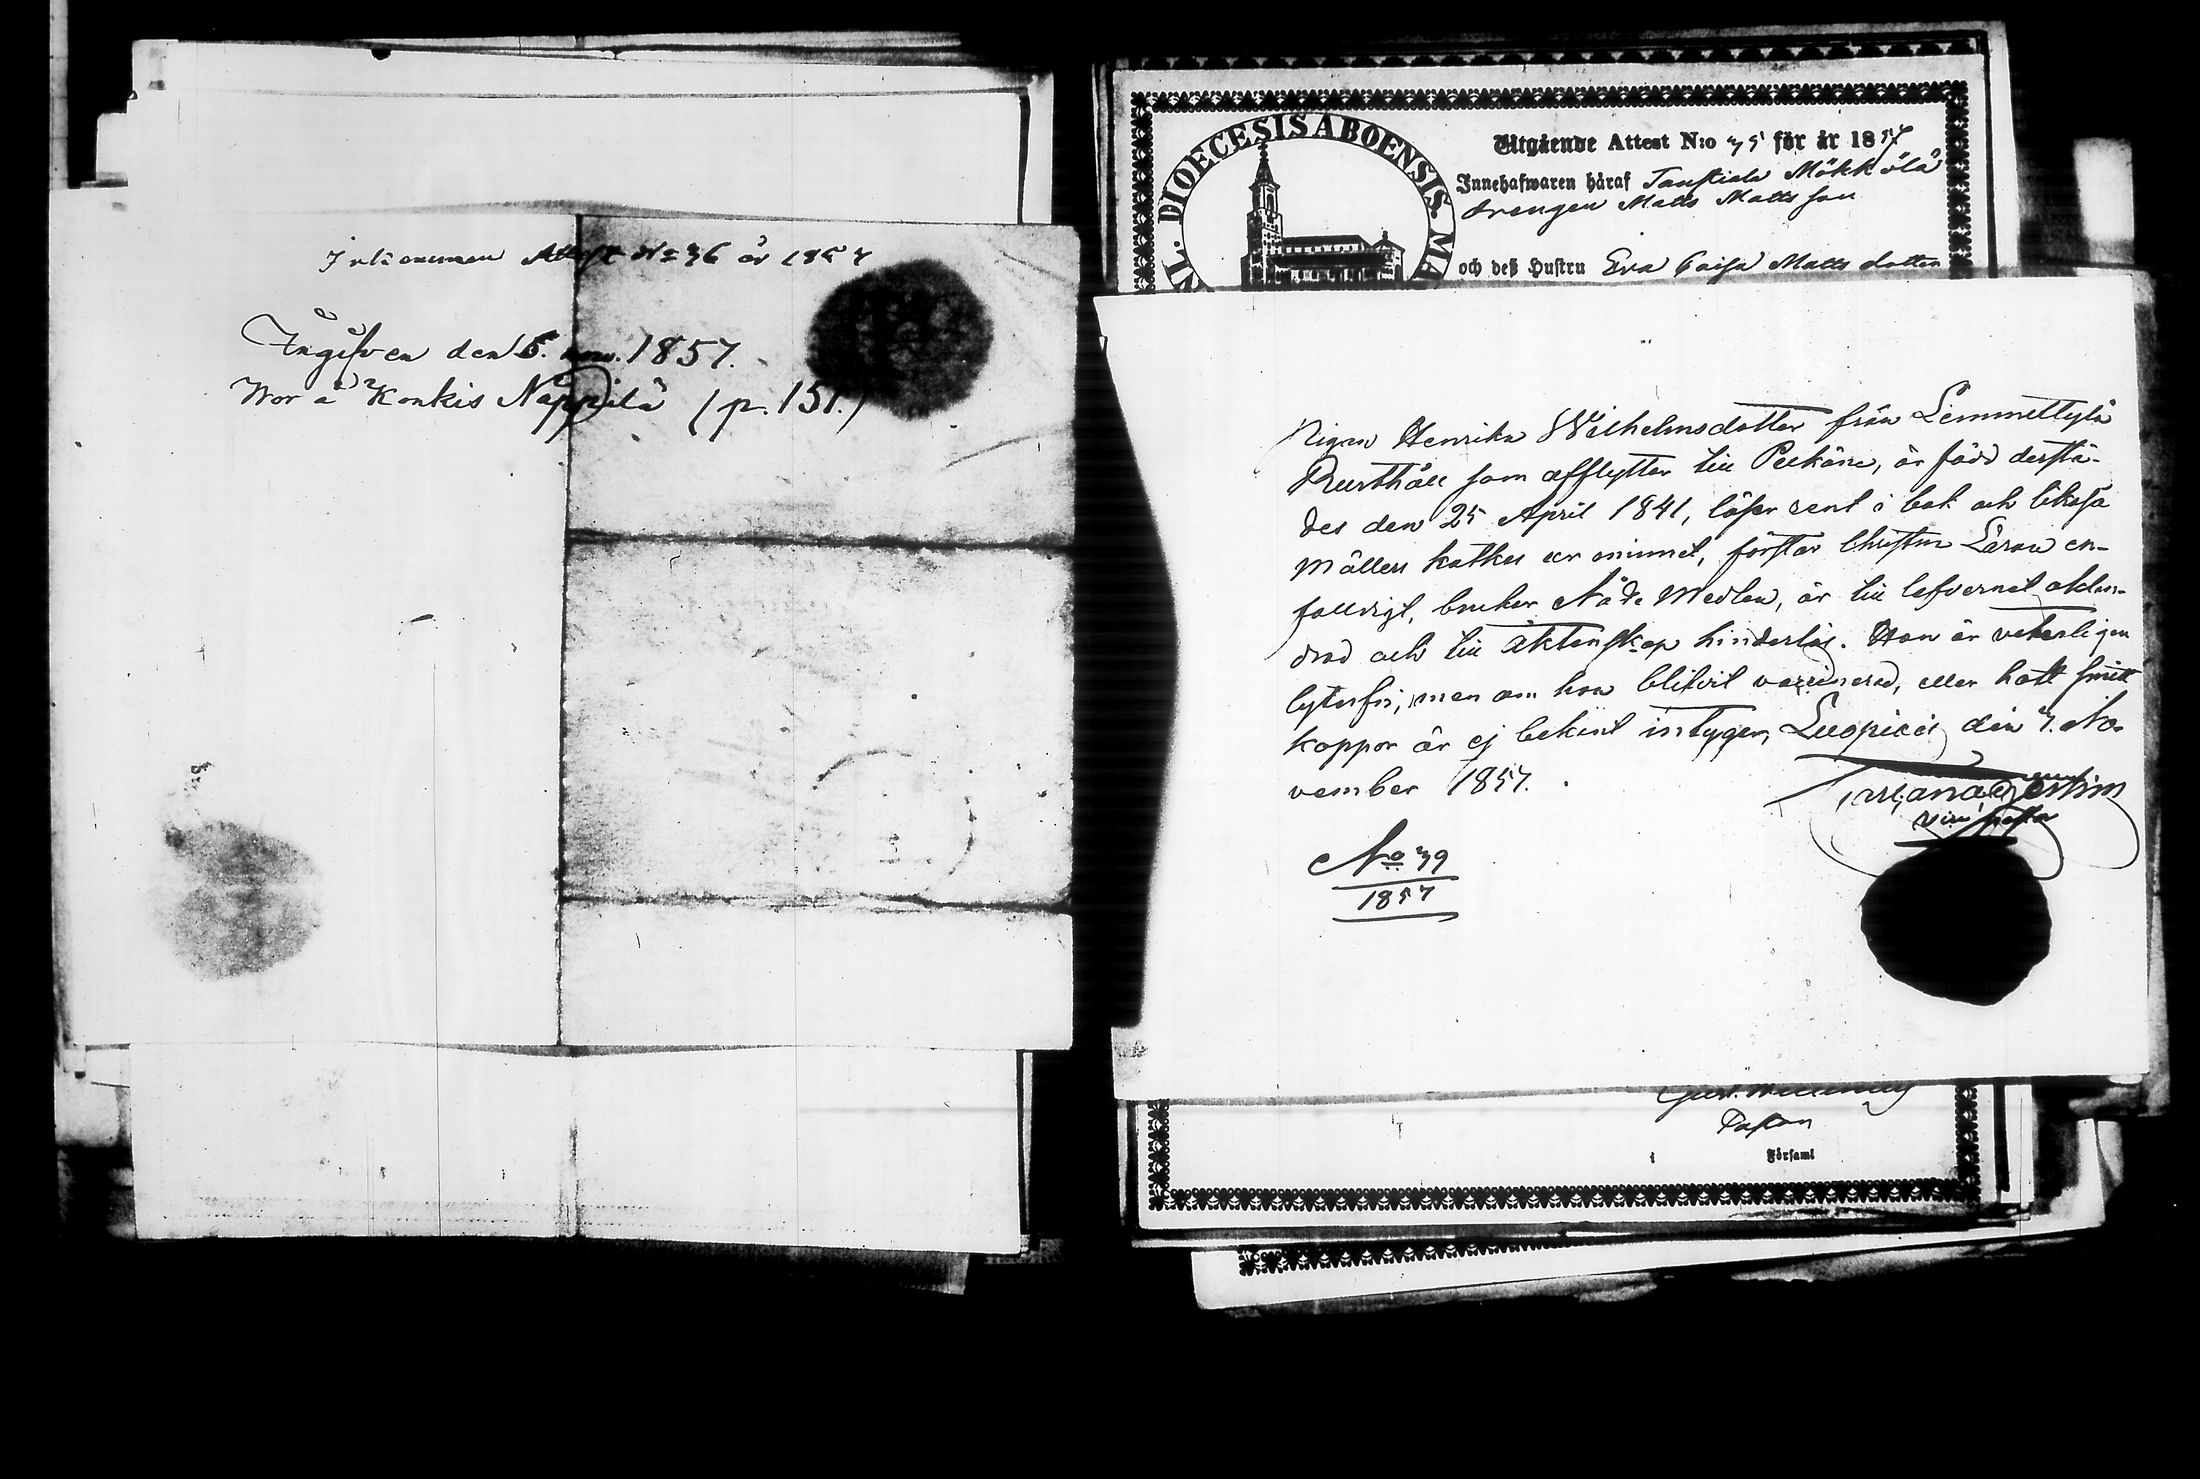 Inkommen Attest No 36 år 1857
Ingifven den 6. nov. 1857.
Bor å Konkis Näppilä (p. 151.)
DIOECESIS ABOENSIS.
Utgående Attest N:o 35 för år 1857
Innehafwaren häraf Taustiala Mökkölä
drengen Matts Mattsson
och deß Hustru Eva Caisa Mattsdotter
Pigan Henrika Wilhelmsdotter från Limmettylä
Rusthåll som afflyttar till Pelkäne, är född derstä-
des den 25 April 1841, läser rent i bok och likaså
Möllers katkes ur minnet, förstår Christna Läran en-
falldigt, brukar Nåde Medlen, är till lefvernet oklan-
drad och till äktenskap hinderlös. Hon är veterligen
lytesfri, men om hon blifvit vaccinerad, eller haft smitt
koppor är ej bekant intygar, Luopiois den 3. No-
vember 1857.
vice pastor
No 39
1857
Pastor
i Församl